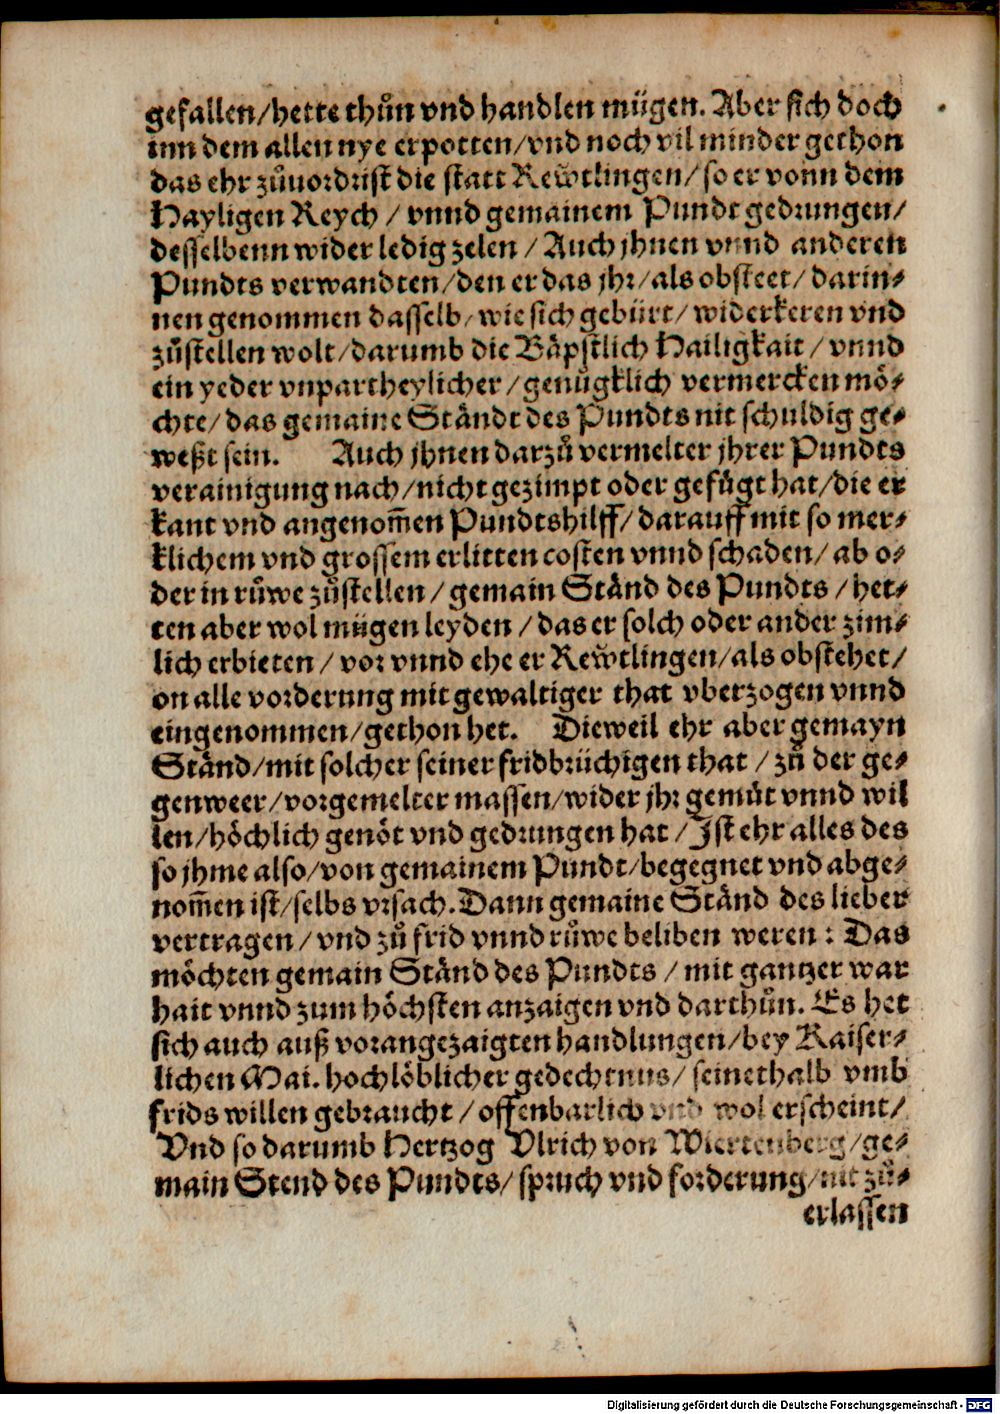 gefallen/hette thůn vnd handlen mügen. Aber sich doch
inn dem allen nye erpotten/vnd noch vil minder gethon
das ehr zůuordrist die statt Rewtlingen/so er vonn dem
Hayligen Reych / vnnd gemainem Pundt gedrungen/
desselbenn wider ledig zelen / Auch jhnen vnnd anderen
Pundts verwandten/den er das jhr/als obsteet/darin⸗
nen genommen dasselb/wie sich gebürt/widerkeren vnd
zůstellen wolt/darumb die Bäpstlich Hailigkait / vnnd
ein yeder vnpartheylicher/genůgklich vermercken mö⸗
chte/das gemaine Ständt des Pundts nit schuldig ge⸗
weßt sein. Auch jhnen darzů vermelter jhrer Pundts
verainigung nach/nicht gezimpt oder gefůgt hat/die er
kant vnd angenom̄en Pundtshilff/darauff mit so mer⸗
klichem vnd grossem erlitten costen vnnd schaden/ab o⸗
der in růwe zůstellen / gemain Ständ des Pundts / het⸗
ten aber wol mügen leyden / das er solch oder ander zim⸗
lich erbieten / vor vnnd ehe er Rewtlingen/als obstehet/
on alle vorderung mit gewaltiger that vberzogen vnnd
eingenommen/gethon het. Dieweil ehr aber gemayn
Ständ/mit solcher seiner fridbrüchigen that / zů der ge⸗
genweer/vorgemelter massen/wider jhr gemůt vnnd wil
len/höchlich genöt vnd gedrungen hat / Ist ehr alles des
so jhme also/von gemainem Pundt/begegnet vnd abge⸗
nom̄en ist/selbs vrsach. Dann gemaine Ständ des lieber
vertragen / vnd zů frid vnnd růwe beliben weren : Das
möchten gemain Ständ des Pundts / mit gantzer war
hait vnnd zum höchsten anzaigen vnd darthůn. Es het
sich auch auß vorangezaigten handlungen/bey Kaiser⸗
lichen Mai. hochlöblicher gedechtnus/ seinethalb vmb
frids willen gebraucht / offenbarlich vnd wol erscheint/
Vnd so darumb Hertzog Vlrich von Wiertenberg/ge⸗
main Stend des Pundts/ spruch vnd forderung/nit zů⸗
erlassen
Digitalisierung gefördert durch die Deutsche Forschungsgemeinschaft - DFG